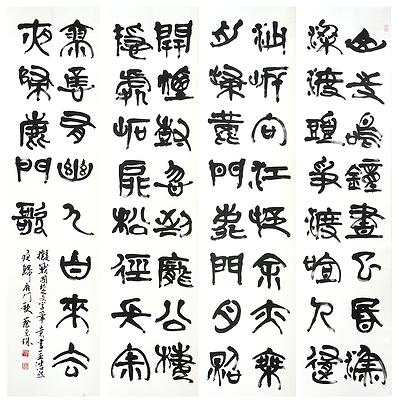 山寺鳴鐘晝已昏漁
梁渡頭爭渡喧人隨
沙岸向江村余亦乘
舟歸鹿門鹿門月照
開煙樹忽到龐公棲
隱處岩扉松徑長寂
寥惟有幽人自來去
夜歸鹿門歌
擬戰國楚文字筆意書孟浩然
夜歸鹿門歌 蔡 珠